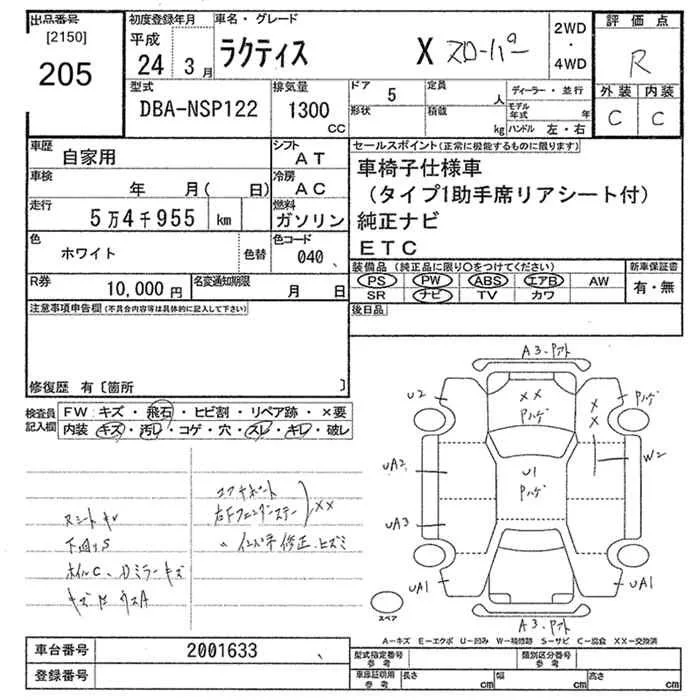 出品番号
[2150]
205
初度登録年月
平成
24 3月
車名・グレード
ラクティス X スローパー
2WD
・
4WD
評価点
R
外装 内装
C C
型式
DBA-NSP122
排気量
1300
CC
ドア
5
形状
定員
人
積載
kg
ディーラー・並行
モデル
年式 年
ハンドル 左・右
車歴
自家用
シフト
AT
車検
年 月( 日)
冷房
AC
走行
5万4千955 km
燃料
ガソリン
色
ホワイト
色替
色コード
040
R券
10,000円
名変通知期限
月 日
セールスポイント(正常に機能するものに限ります)
車椅子仕様車
(タイプ1助手席リアシート付)
純正ナビ
ETC
装備品(純正品に限り○をつけてください)
PS PW ABS エアB AW
SR ナビ TV カワ
新車保証書
有・無
後日品
注意事項申告欄(不具合内容等は具体的に記入して下さい)
修復歴 有〔箇所 〕
検査員
記入欄
FW:キズ・飛石・ヒビ割・リペア跡・×要
内装:キズ・汚レ・コゲ・穴・スレ・キレ・破レ
コアサポート
右Fフェンダーステー
XX
インパネ 修正、ヒズミ
シートキレ
下回りS
ホイルC、Dミラーキズ
A3・Pアト
U2
XX
Pハゲ
Pハゲ
X
X
W2
UA2
U1
Pハゲ
UA3
UA1
UA1
A3・Pアト
スペア
A－キズ E－エクボ U－凹み W－補修跡 S－サビ C－腐食 XX－交換済
車台番号
2001633
登録番号
型式指定番号
参考
類別区分番号
参考
車庫証明用
参考
長さ
cm
幅
cm
高さ
cm